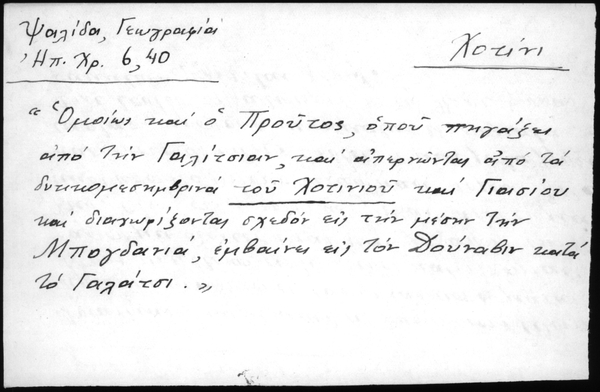 Ψαλίδα, Γεωγραφία
Ἠπ. Χρ. 6, 40
Χοτίνι
"Ὁμοίως καὶ ὁ Προῦτος, ὁποῦ πηγάζει
ἀπὸ τὴν Γαλίτσιαν, καὶ ἀπερνῶντας ἀπὸ τὰ
δυτικομεσημβρινὰ τοῦ Χοτινιοῦ καὶ Γιασίου
καὶ διαχωρίζοντας σχεδὸν εἰς τὴν μέσην τὴν
Μπογδανιά, ἐμβαίνει εἰς τὸν Δούναβιν κατὰ
τὸ Γαλάτσι."